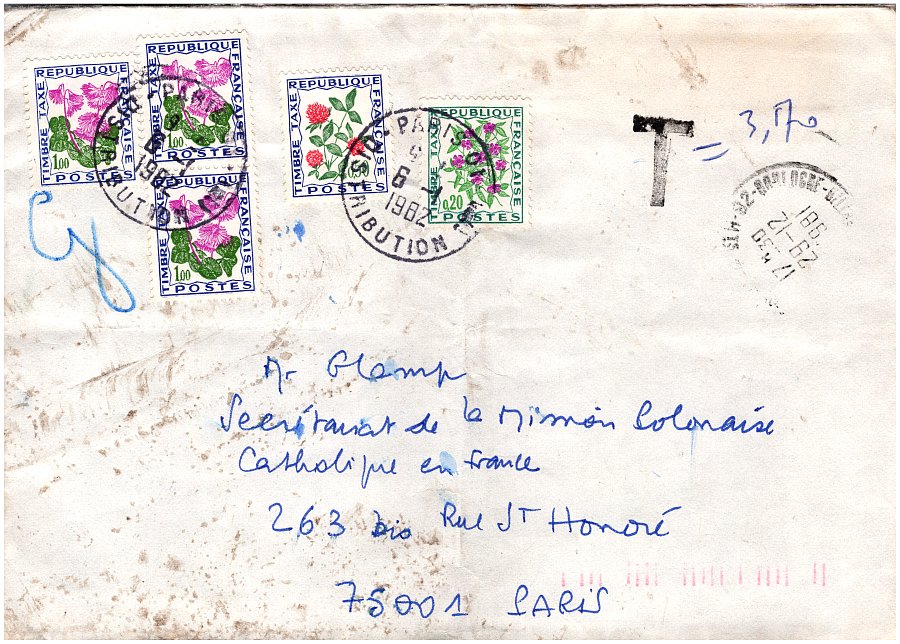 RÉPUBLIQUE FRANÇAISE TIMBRE TAXE 1.00 POSTES
RÉPUBLIQUE FRANÇAISE TIMBRE TAXE 1.00 POSTES
FRANÇAISE TIMBRE TAXE 1.00 POSTES
RÉPUBLIQUE FRANÇAISE TIMBRE TAXE 0.50 POSTES
RÉPUBLIQUE FRANÇAISE TIMBRE TAXE 0,20 POSTES
PARIS 1982 DISTRIBUTION
PARIS 01 6 -1 1982 DISTRIBUTION
T = 3,70
17 H30
29-12
1981
92
Mr Glemp
Secrétariat de la Mission Polonaise
Catholique en France
263 bis Rue St Honoré
75001 PARIS